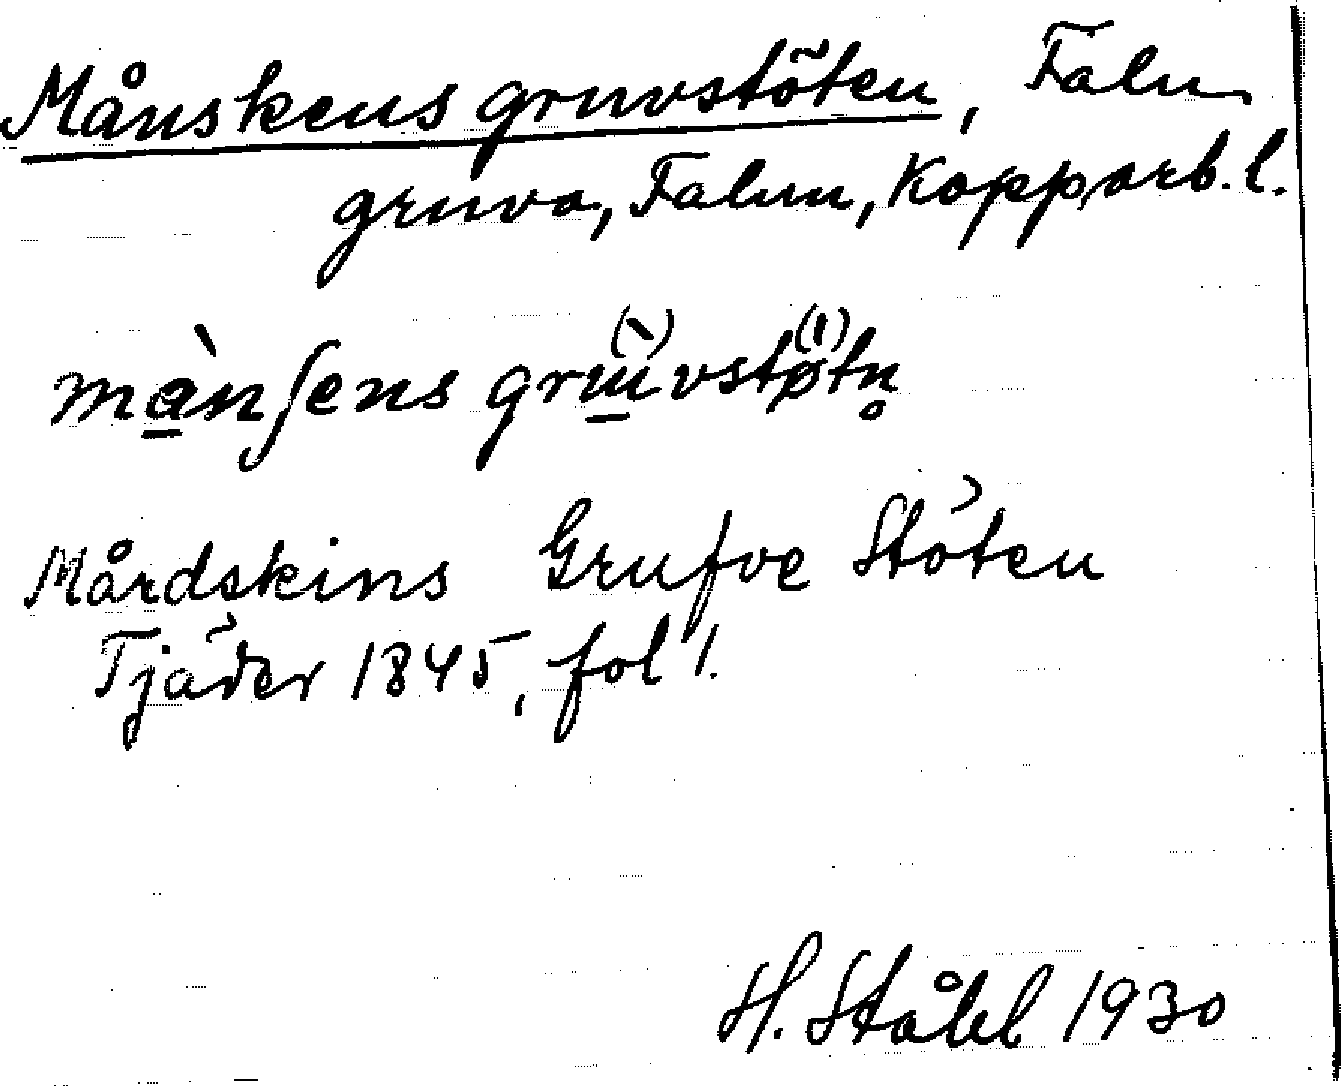 Månskens gruvstöten, Falu
gruva, Falun, Kopparb. l.
må̀nʃens gru̇̀vstø̍tn̥
Mårdskins Grufve Stöten
Tjäder 1845, fol 1.
H. Ståhl 1930